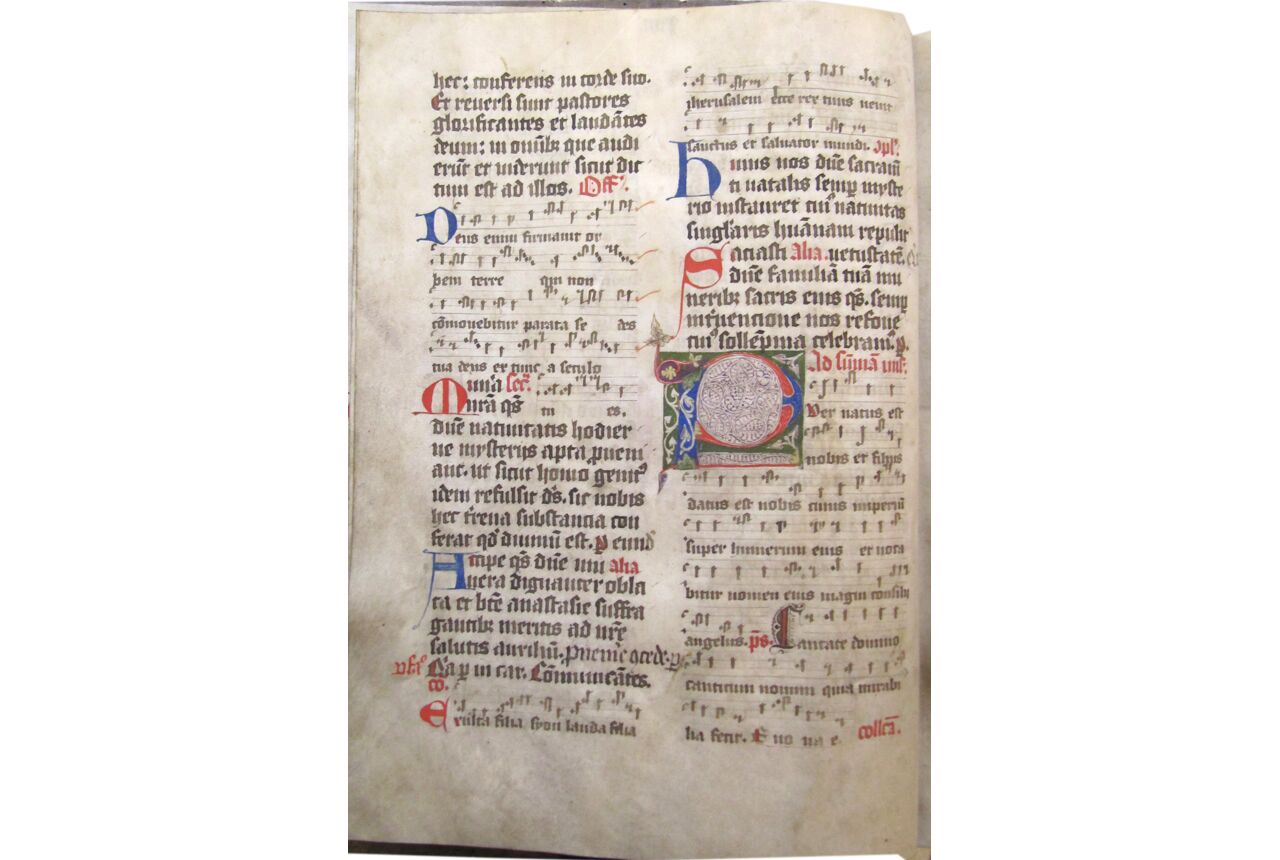 hec: conferens in corde suo.
Et reuersi sunt pastores
glorificantes et laudātes
deum: in omībꝫ que audi
erūt et viderunt sicut dic
tum est ad illos. Off'.
Deus enim firmauit or
bem terre qui non
cōmouebitur parata se des
tua deus ex tunc a seculo
Munera sec̄. tu es.
nr̄a qs̄
dn̄e natiuitatis hodier
ne mysterijs apta ꝓueni
ant. ut sicut homo genit'
idem refulsit ds̄. sic nobis
hec t'rena substancia con
ferat qd̄ diuinū est. p eund'
Accipe qs̄ dn̄e mu alia
nera dignanter obla
ta et btē anastasie suffra
gantibꝫ meritis ad nr̄e
salutis auxiliū. ꝓuenire ɔcede. p
Q̄a p in car. Cōmunicātes.
co.
Exulta filia syon lauda filia
iherusalem ecce rex tuus venit
sanctus et saluator mundi. 9pl'.
Huius nos dn̄e sacram̄
ti natalis semꝑ myste
rio instauret cui' natiuitas
singl'aris huānam repulit
Saciasti alia. uetustatē.
dn̄e familiā tuā mu
neribꝫ sacris eius qs̄. semꝑ
int'uencione nos refoue
cui' sollēpnia celebram'. p.
Ad sūmā mis'.
Puer natus est
nobis et filius
datus est nobis cuius imperiū
super humerum eius et voca
bitur nomen eius magni consilii
angelus. ps̄. Cantate domino
canticum nouum quia mirabi
lia fecit. E uo ua e. collc̄a.